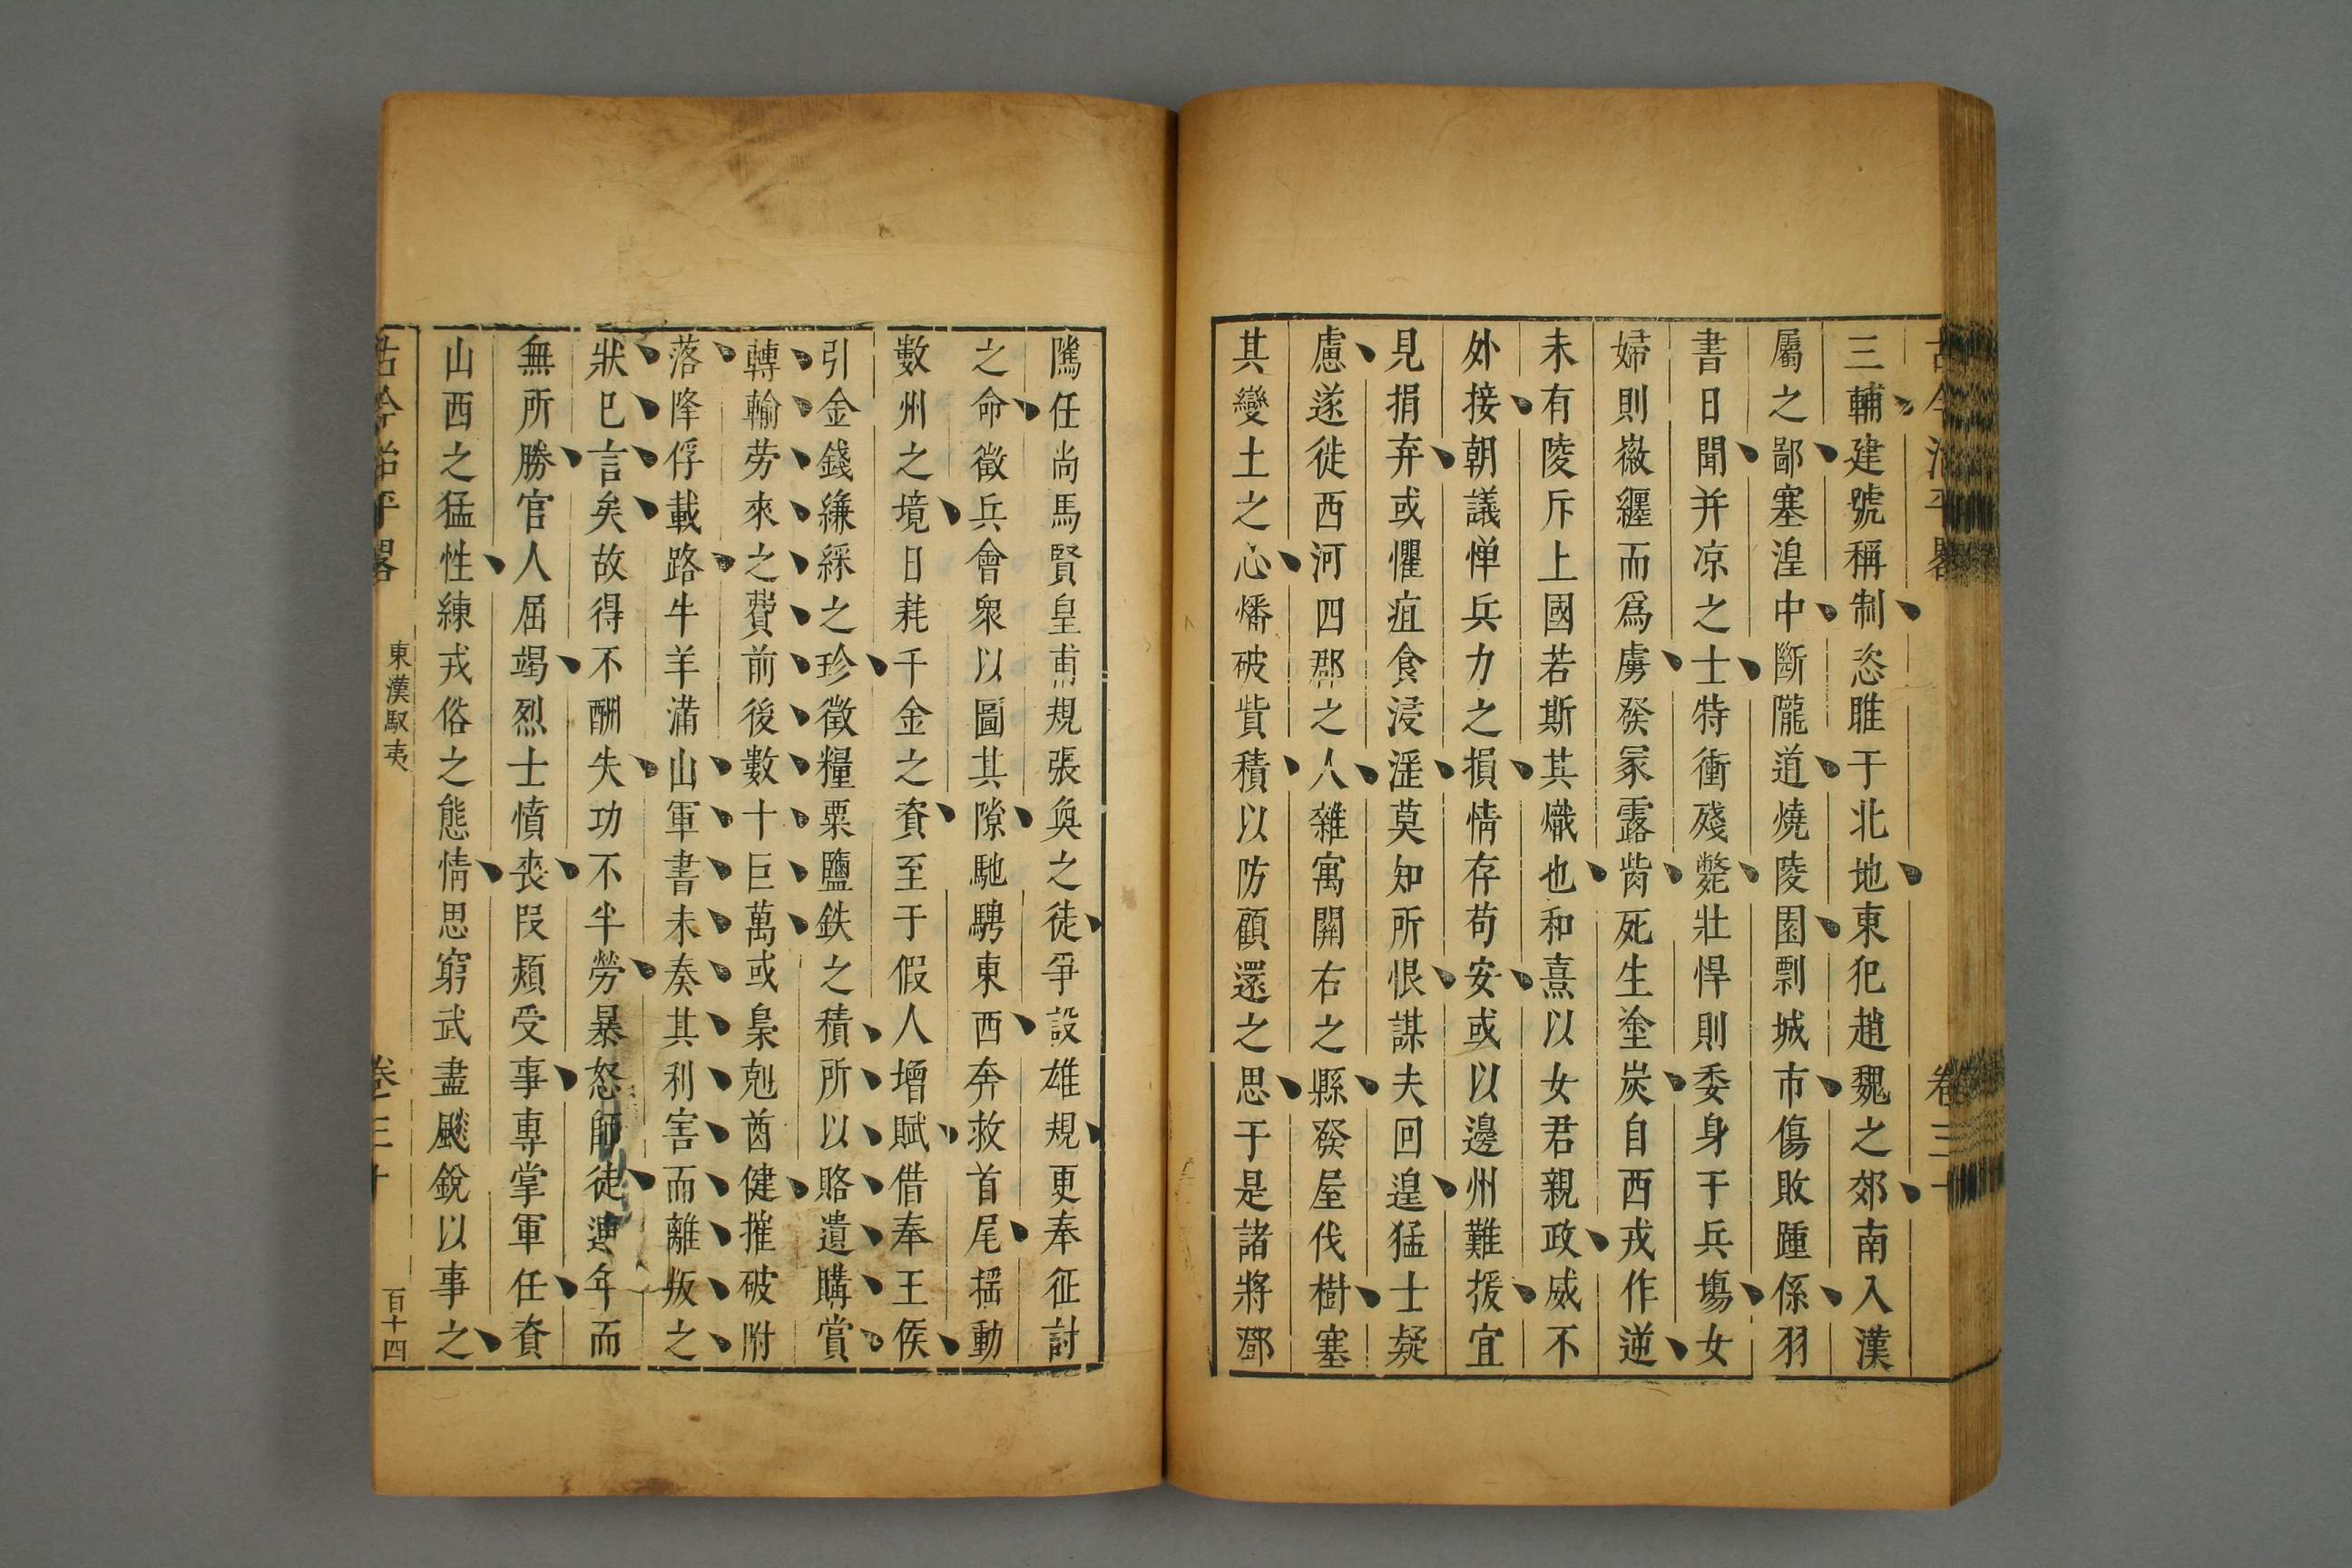 古今治平畧 卷三十
三輔建號稱制恣睢于北地東犯趙魏之郊南入漢
屬之鄙塞湟中斷隴道燒陵園剽城市傷敗踵係羽
書日聞并凉之士特衝殘斃壯悍則委身于兵塲女
婦則徽纆而爲虜發冢露胔死生塗炭自西戎作逆
未有陵斥上國若斯其熾也和熹以女君親政威不
外接朝議惮兵力之損情存苟安或以邊州難援宜
見捐弃或懼疽食浸淫莫知所恨謀夫回遑猛士疑
慮遂徙西河四郡之人雜寓關右之縣發屋伐樹塞
其變土之心燔破貲積以防顧還之思于是諸將鄧
隲任尚馬賢皇甫規張奐之徒爭設雄規更奉征討
之命徵兵會衆以圖其隙馳騁東西奔救首尾揺動
數州之境日耗千金之資至于假人增賦借奉王侯
引金錢縑綵之珍徵糧粟鹽鉄之積所以賂遺購賞
轉輸劳來之費前後數十巨萬或梟剋酋健摧破附
落降俘載路牛羊滿山軍書未奏其利害而離叛之
狀已言矣故得不酬失功不半勞暴怒師徒連年而
無所勝官人屈竭烈士憤喪叚熲受事專掌軍任資
山西之猛性練戎俗之態情思窮武盡飈銳以事之
古今治平畧 東漢馭夷 卷三十 百十四